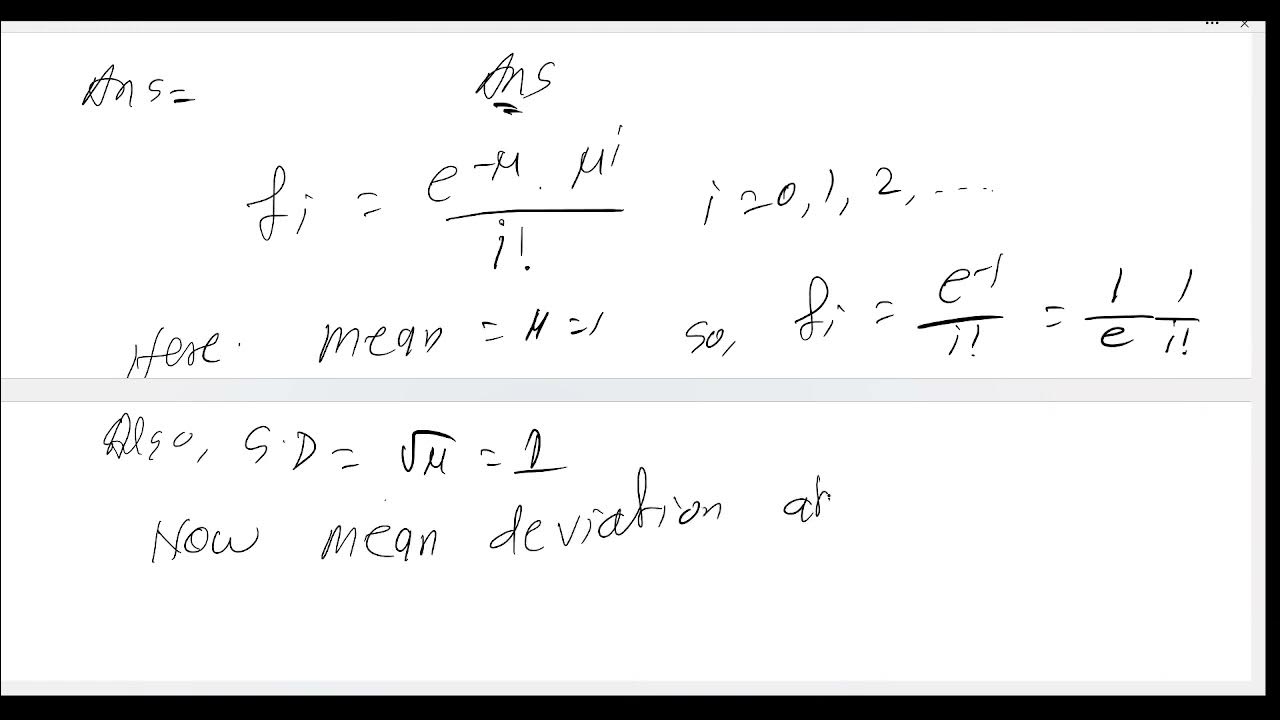 Ans= Ans
fi = e^-μ . μ^i / i! i=0, 1, 2, ....
Here. mean = μ =1 so, fi = e^-1 / i! = 1/e 1/i!
Also, S.D = √μ = 1
Now mean deviation ab